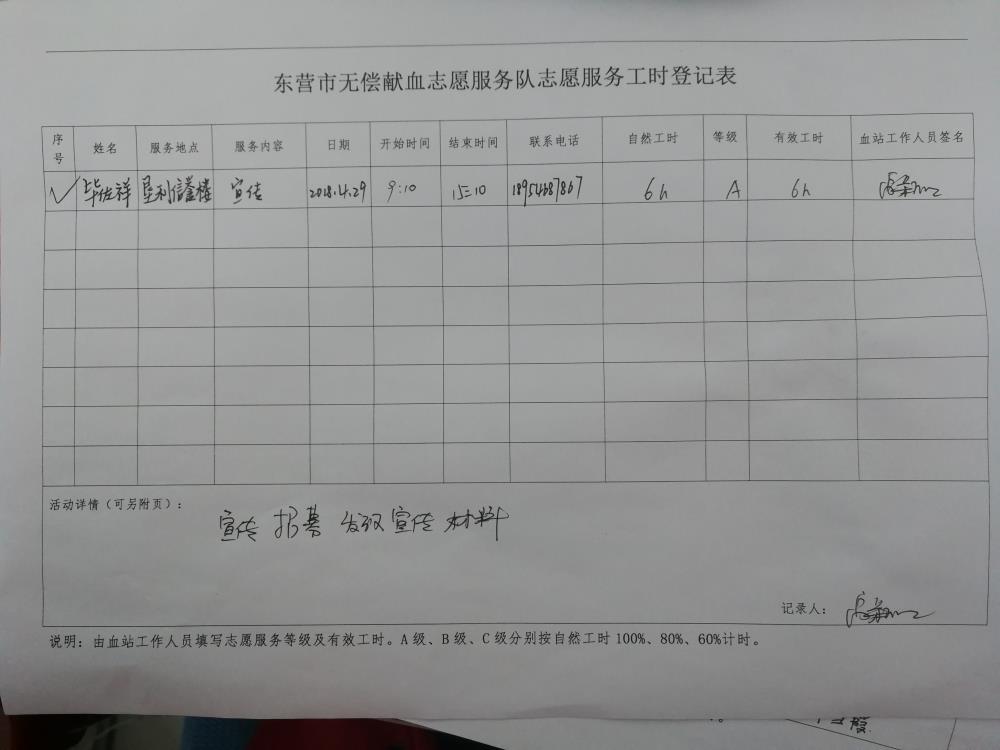 东营市无偿献血志愿服务队志愿服务工时登记表
序号 姓名 服务地点 服务内容 日期 开始时间 结束时间 联系电话 自然工时 等级 有效工时 血站工作人员签名
✓ 毕佐祥 垦利信誉楼 宣传 2018.4.29 9:10 15:10 18954687867 6h A 6h
活动详情（可另附页）：
宣传 招募 发放宣传材料
记录人：
说明：由血站工作人员填写志愿服务等级及有效工时。A级、B级、C级分别按自然工时100%、80%、60%计时。